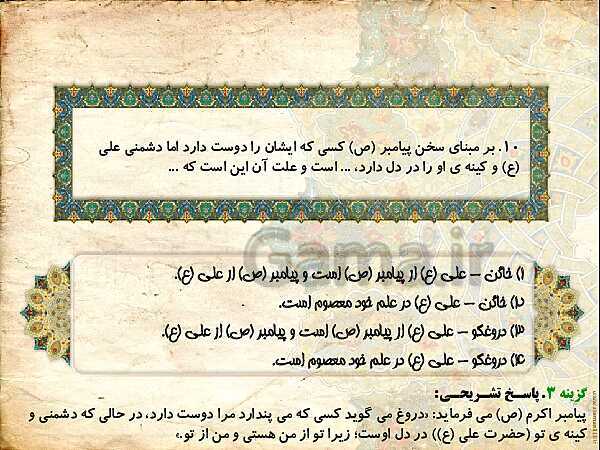 ۱۰. بر مبنای سخن پیامبر (ص) کسی که ایشان را دوست دارد اما دشمنی علی
(ع) و کینه ی او را در دل دارد، ... است و علت آن این است که ...
Gama.ir
۱) خائن – علی (ع) از پیامبر (ص) است و پیامبر (ص) از علی (ع).
۲) خائن – علی (ع) در علم خود معصوم است.
۳) دروغگو – علی (ع) از پیامبر (ص) است و پیامبر (ص) از علی (ع).
۴) دروغگو – علی (ع) در علم خود معصوم است.
گزینه ۳. پاسخ تشریحی:
پیامبر اکرم (ص) می فرماید: «دروغ می گوید کسی که می پندارد مرا دوست دارد، در حالی که دشمنی و
کینه ی تو (حضرت علی (ع)) در دل اوست؛ زیرا تو از من هستی و من از تو.»